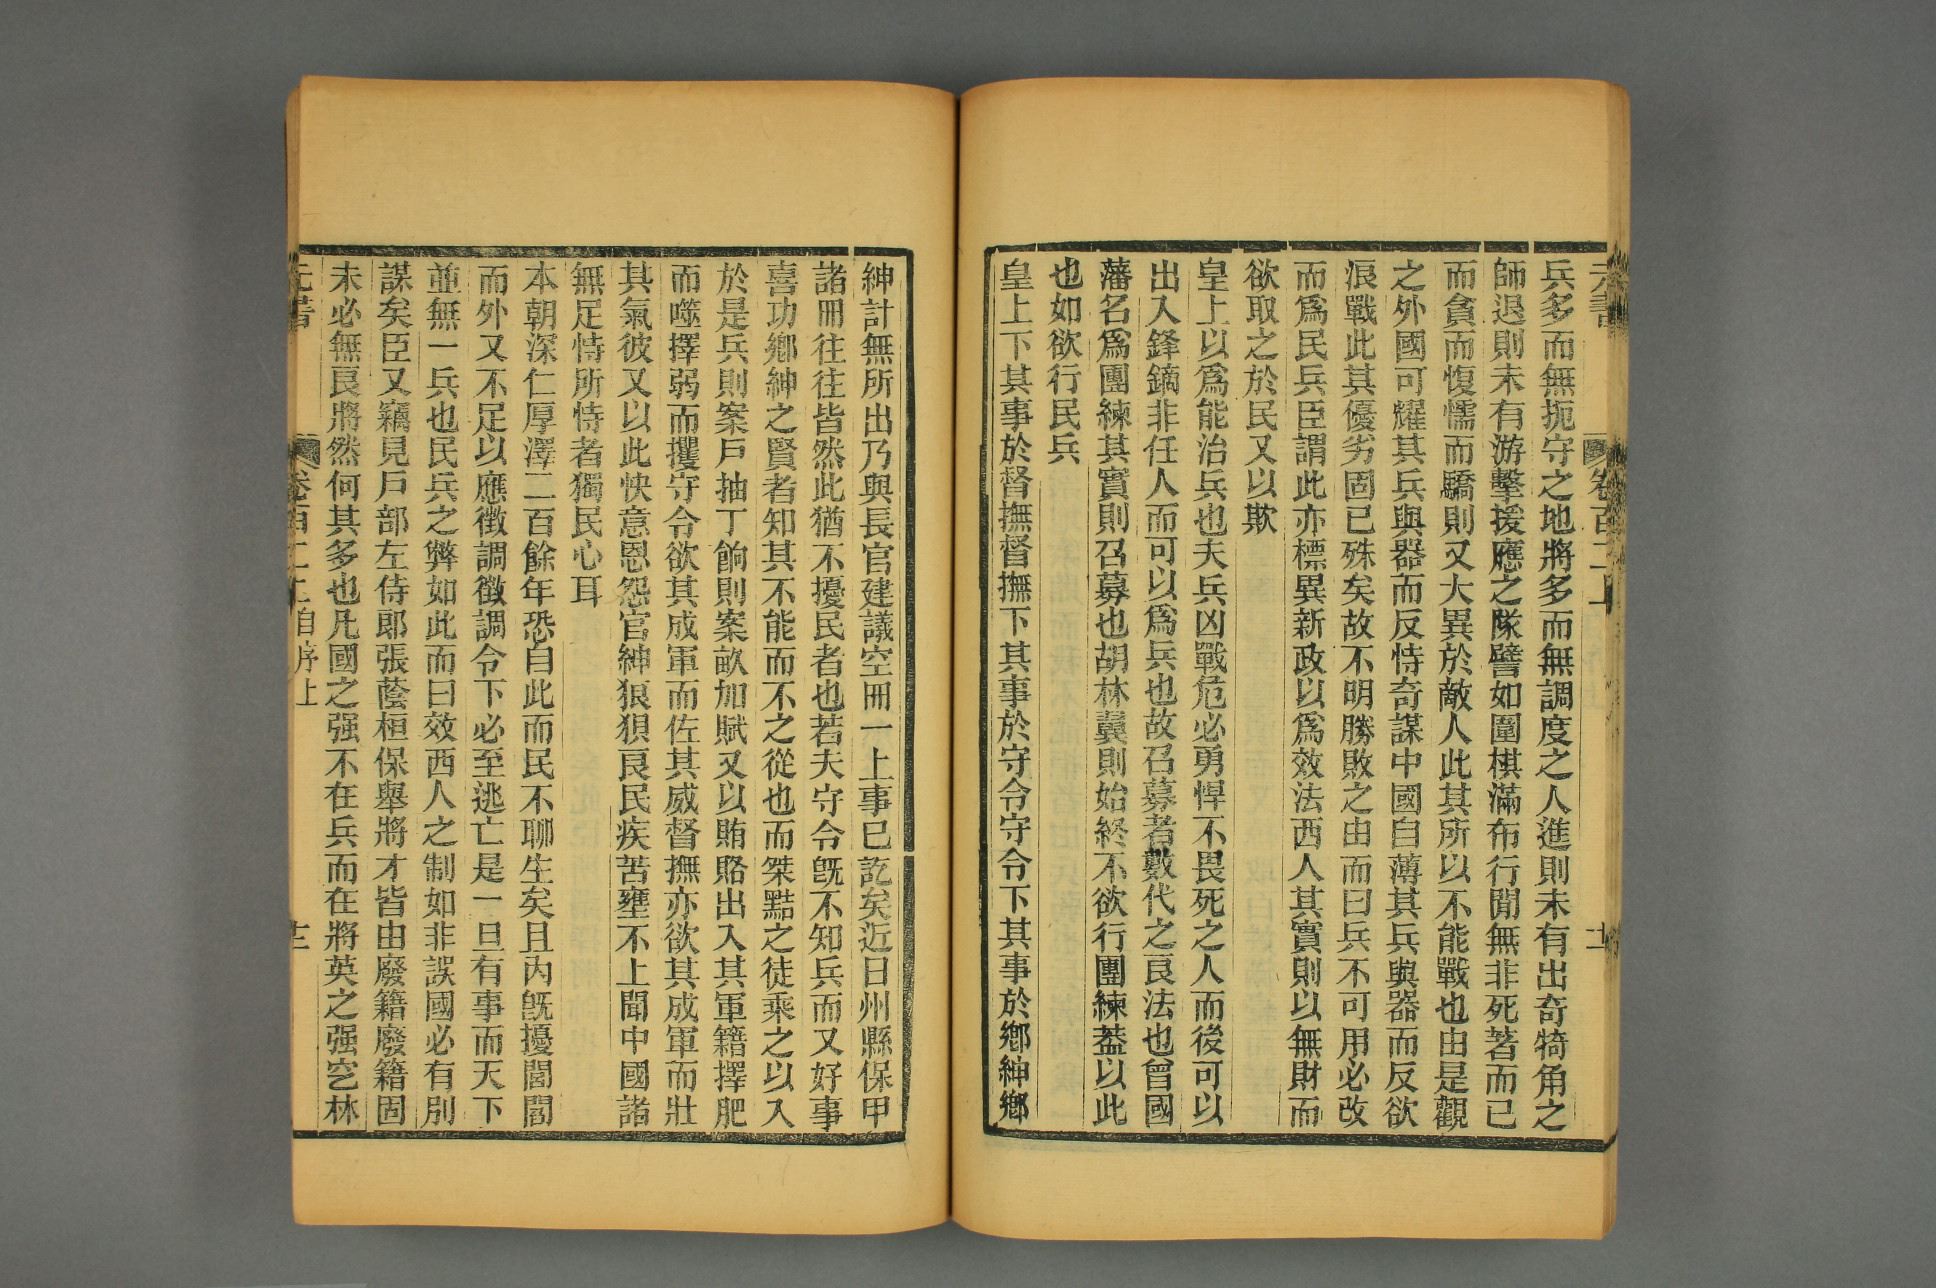 元書　卷百二　十一
兵多而無扼守之地將多而無調度之人進則未有出奇犄角之
師退則未有游擊援應之隊譬如圍棋滿布行閒無非死著而已
而貪而愎懦而驕則又大異於敵人此其所以不能戰也由是觀
之外國可耀其兵與器而反恃奇謀中國自薄其兵與器而反欲
浪戰此其優劣固已殊矣故不明勝敗之由而曰兵不可用必改
而爲民兵臣謂此亦標異新政以爲效法西人其實則以無財而
欲取之於民又以欺
皇上以爲能治兵也夫兵凶戰危必勇悍不畏死之人而後可以
出入鋒鏑非任人而可以爲兵也故召募者數代之良法也曾國
藩名爲團練其實則召募也胡林翼則始終不欲行團練蓋以此
也如欲行民兵
皇上下其事於督撫督撫下其事於守令守令下其事於鄉紳鄉
紳計無所出乃與長官建議空冊一上事已訖矣近日州縣保甲
諸冊往往皆然此猶不擾民者也若夫守令旣不知兵而又好事
喜功鄉紳之賢者知其不能而不之從也而桀黠之徒乘之以入
於是兵則案戶抽丁餉則案畝加賦又以賄賂出入其軍籍擇肥
而噬擇弱而攫守令欲其成軍而佐其威督撫亦欲其成軍而壯
其氣彼又以此快意恩怨官紳狼狽良民疾苦壅不上聞中國諸
無足恃所恃者獨民心耳
本朝深仁厚澤二百餘年恐自此而民不聊生矣且內旣擾閭閻
而外又不足以應徵調徵調令下必至逃亡是一旦有事而天下
並無一兵也民兵之弊如此而曰效西人之制如非誤國必有別
謀矣臣又竊見戶部左侍郎張蔭桓保舉將才皆由廢籍廢籍固
未必無良將然何其多也凡國之强不在兵而在將英之强它林
元書　卷百二　自序上　十二